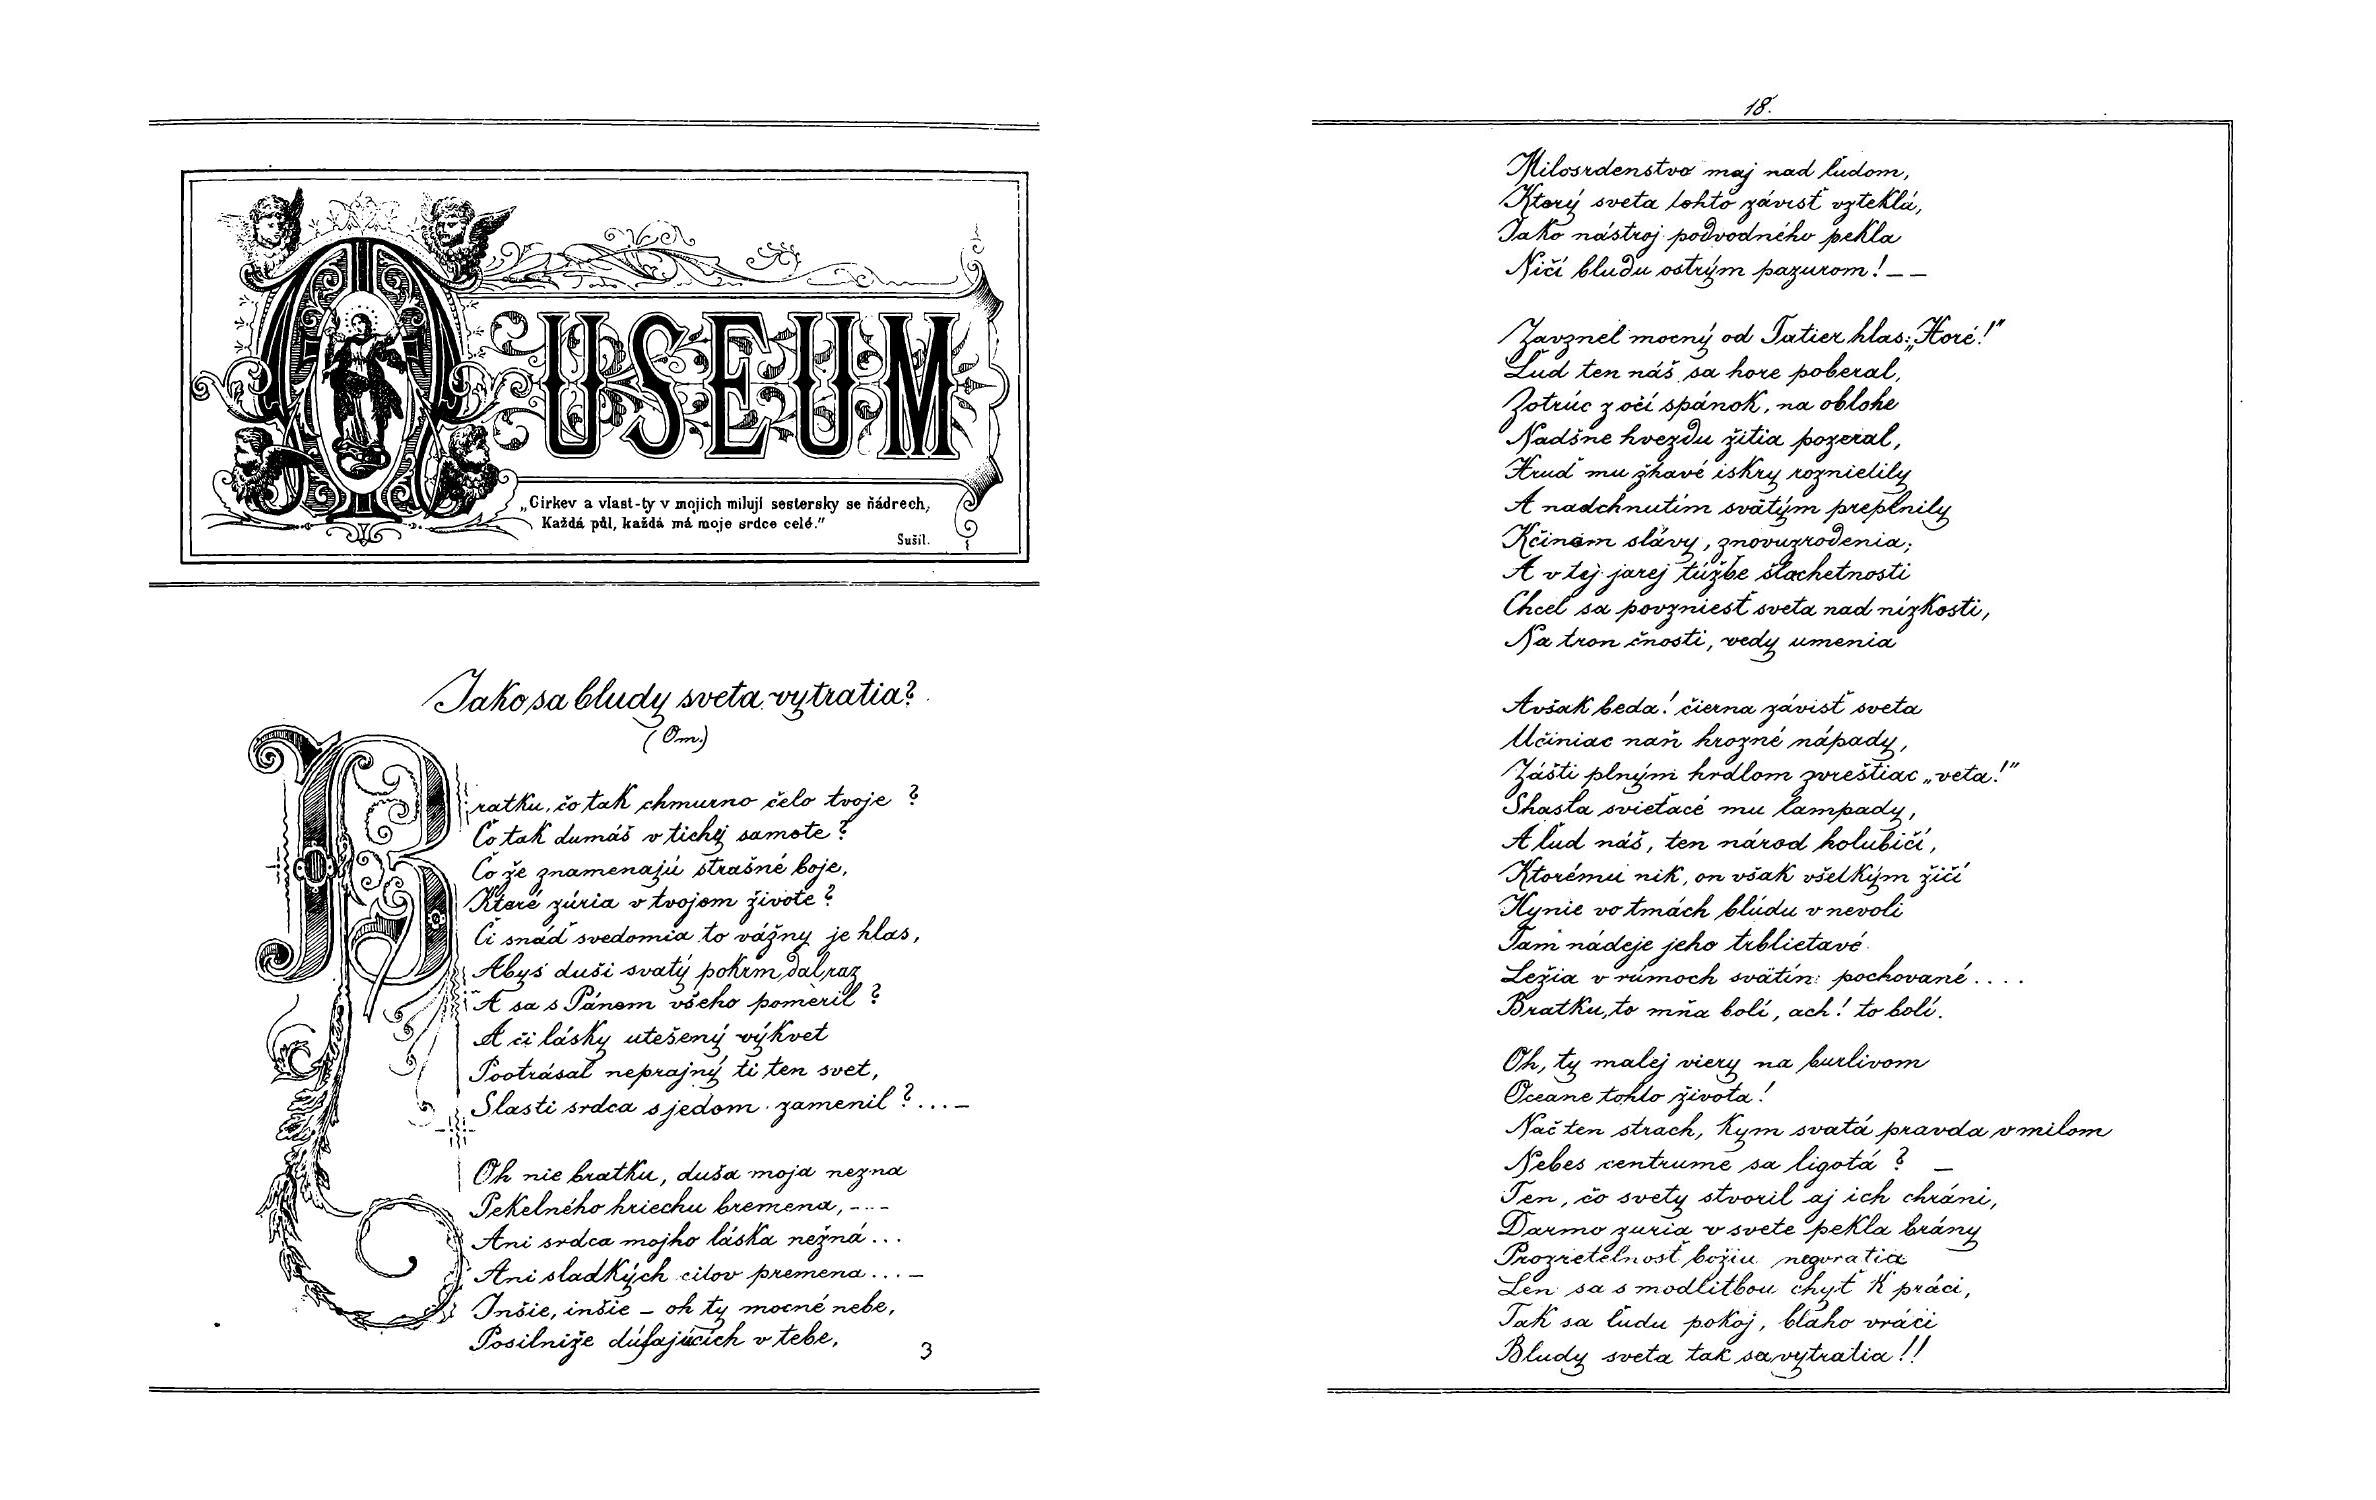 MUSEUM
„Cirkev a vlast-ty v mojich milují sestersky se ňádrech,
Každá půl, každá má moje srdce celé."
Sušil.
Jako sa bludy sveta vytratia?
(Om.)
Bratku, čo tak chmurno čelo tvoje?
Čo tak dumáš v tichej samote?
Čo že znamenajú strašné boje,
Ktoré zúria v tvojom živote?
Či snáď svedomia to vážny je hlas,
Abys duši svatý pokrm dal raz
A sa s Pánom všeho pomeril?
A či lásky utešený výkvet
Pootrásal neprajný ti ten svet,
Slasti srdca s jedom zamenil?...–
Oh nie bratku, duša moja nezna
Pekelného hriechu bremena, –--
Ani srdca mojho láska nežná...
Ani sladkých citov premena...–
Inšie, inšie – oh ty mocné nebe,
Posilniže dúfajúcich v tebe,
3
18.
Milosrdenstvo maj nad ľudom,
Ktorý sveta tohto závisť vzteklá,
Jako nástroj podvodného pekla
Ničí bludu ostrým pazurom! – –
Zavznel mocný od Tatier hlas: „Horé!"
Ľud ten náš sa hore poberal,
Zotrúc z očí spánok, na oblohe
Nadšne hvezdu žitia pozeral,
Hruď mu žhavé iskry roznietily
A nadchnutím svätým preplnily
Kčinom slávy, znovuzrodenia;
A v tej jarej túžbe šlachetnosti
Chcel sa povzniesť sveta nad nízkosti,
Na tron čnosti, vedy umenia
Avšak beda! čierna závisť sveta
Učiniac naň hrozné nápady,
Zášti plným hrdlom zvreštiac „veta!"
Shasla svietacé mu lampady,
A ľud náš, ten národ holubičí,
Ktorému nik, on však všetkým žičí
Hynie vo tmách blúdu v nevoli
Tam nádeje jeho trblietavé
Ležia v rúmoch svätín pochované....
Bratku, to mňa bolí, ach! to bolí.
Oh, ty malej viery na burlivom
Oceane tohto života!
Nač ten strach, kým svatá pravda v milom
Nebes centrume sa ligotá? –
Ten, čo svety stvoril aj ich chráni,
Darmo zuria v svete pekla brány
Prozretelnosť božiu nezvratia
Len sa s modlitbou chyť k práci,
Tak sa ľudu pokoj, blaho vráti
Bludy sveta tak sa vytratia!!